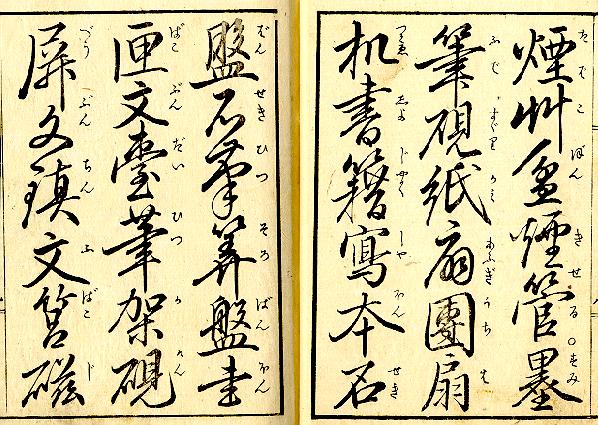 煙艸盆煙管墨
たばこ ぼん きせる ○すみ
筆硯紙扇團扇
ふで すゞり かみ あふぎ うちは
机書籍寫本石
しよ じやく しや ほん せき
盤石筆算盤書
ばん せき ひつ そろ ばん ほん
匣文臺筆架硯
ばこ ぶん だい ひつ か けん
屏文鎮文筥磁
ぶん ちん ふ ばこ じ